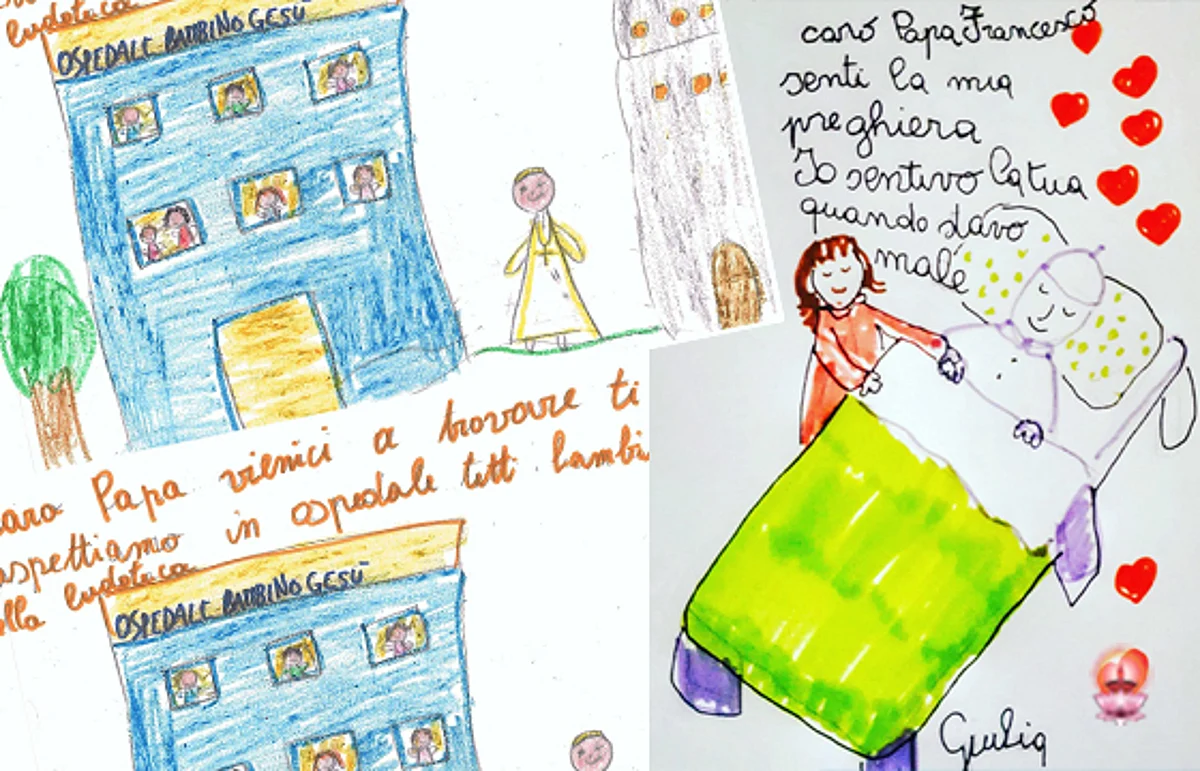 ludoteca
OSPEDALE BAMBINO GESÙ
caro Papa vienici a trovare ti
aspettiamo in ospedale tutti bambi
lla ludoteca
OSPEDALE BAMBINO GESÙ
caro Papa Francesco
senti la mia
preghiera
Io sentivo la tua
quando stavo
male
Giulia